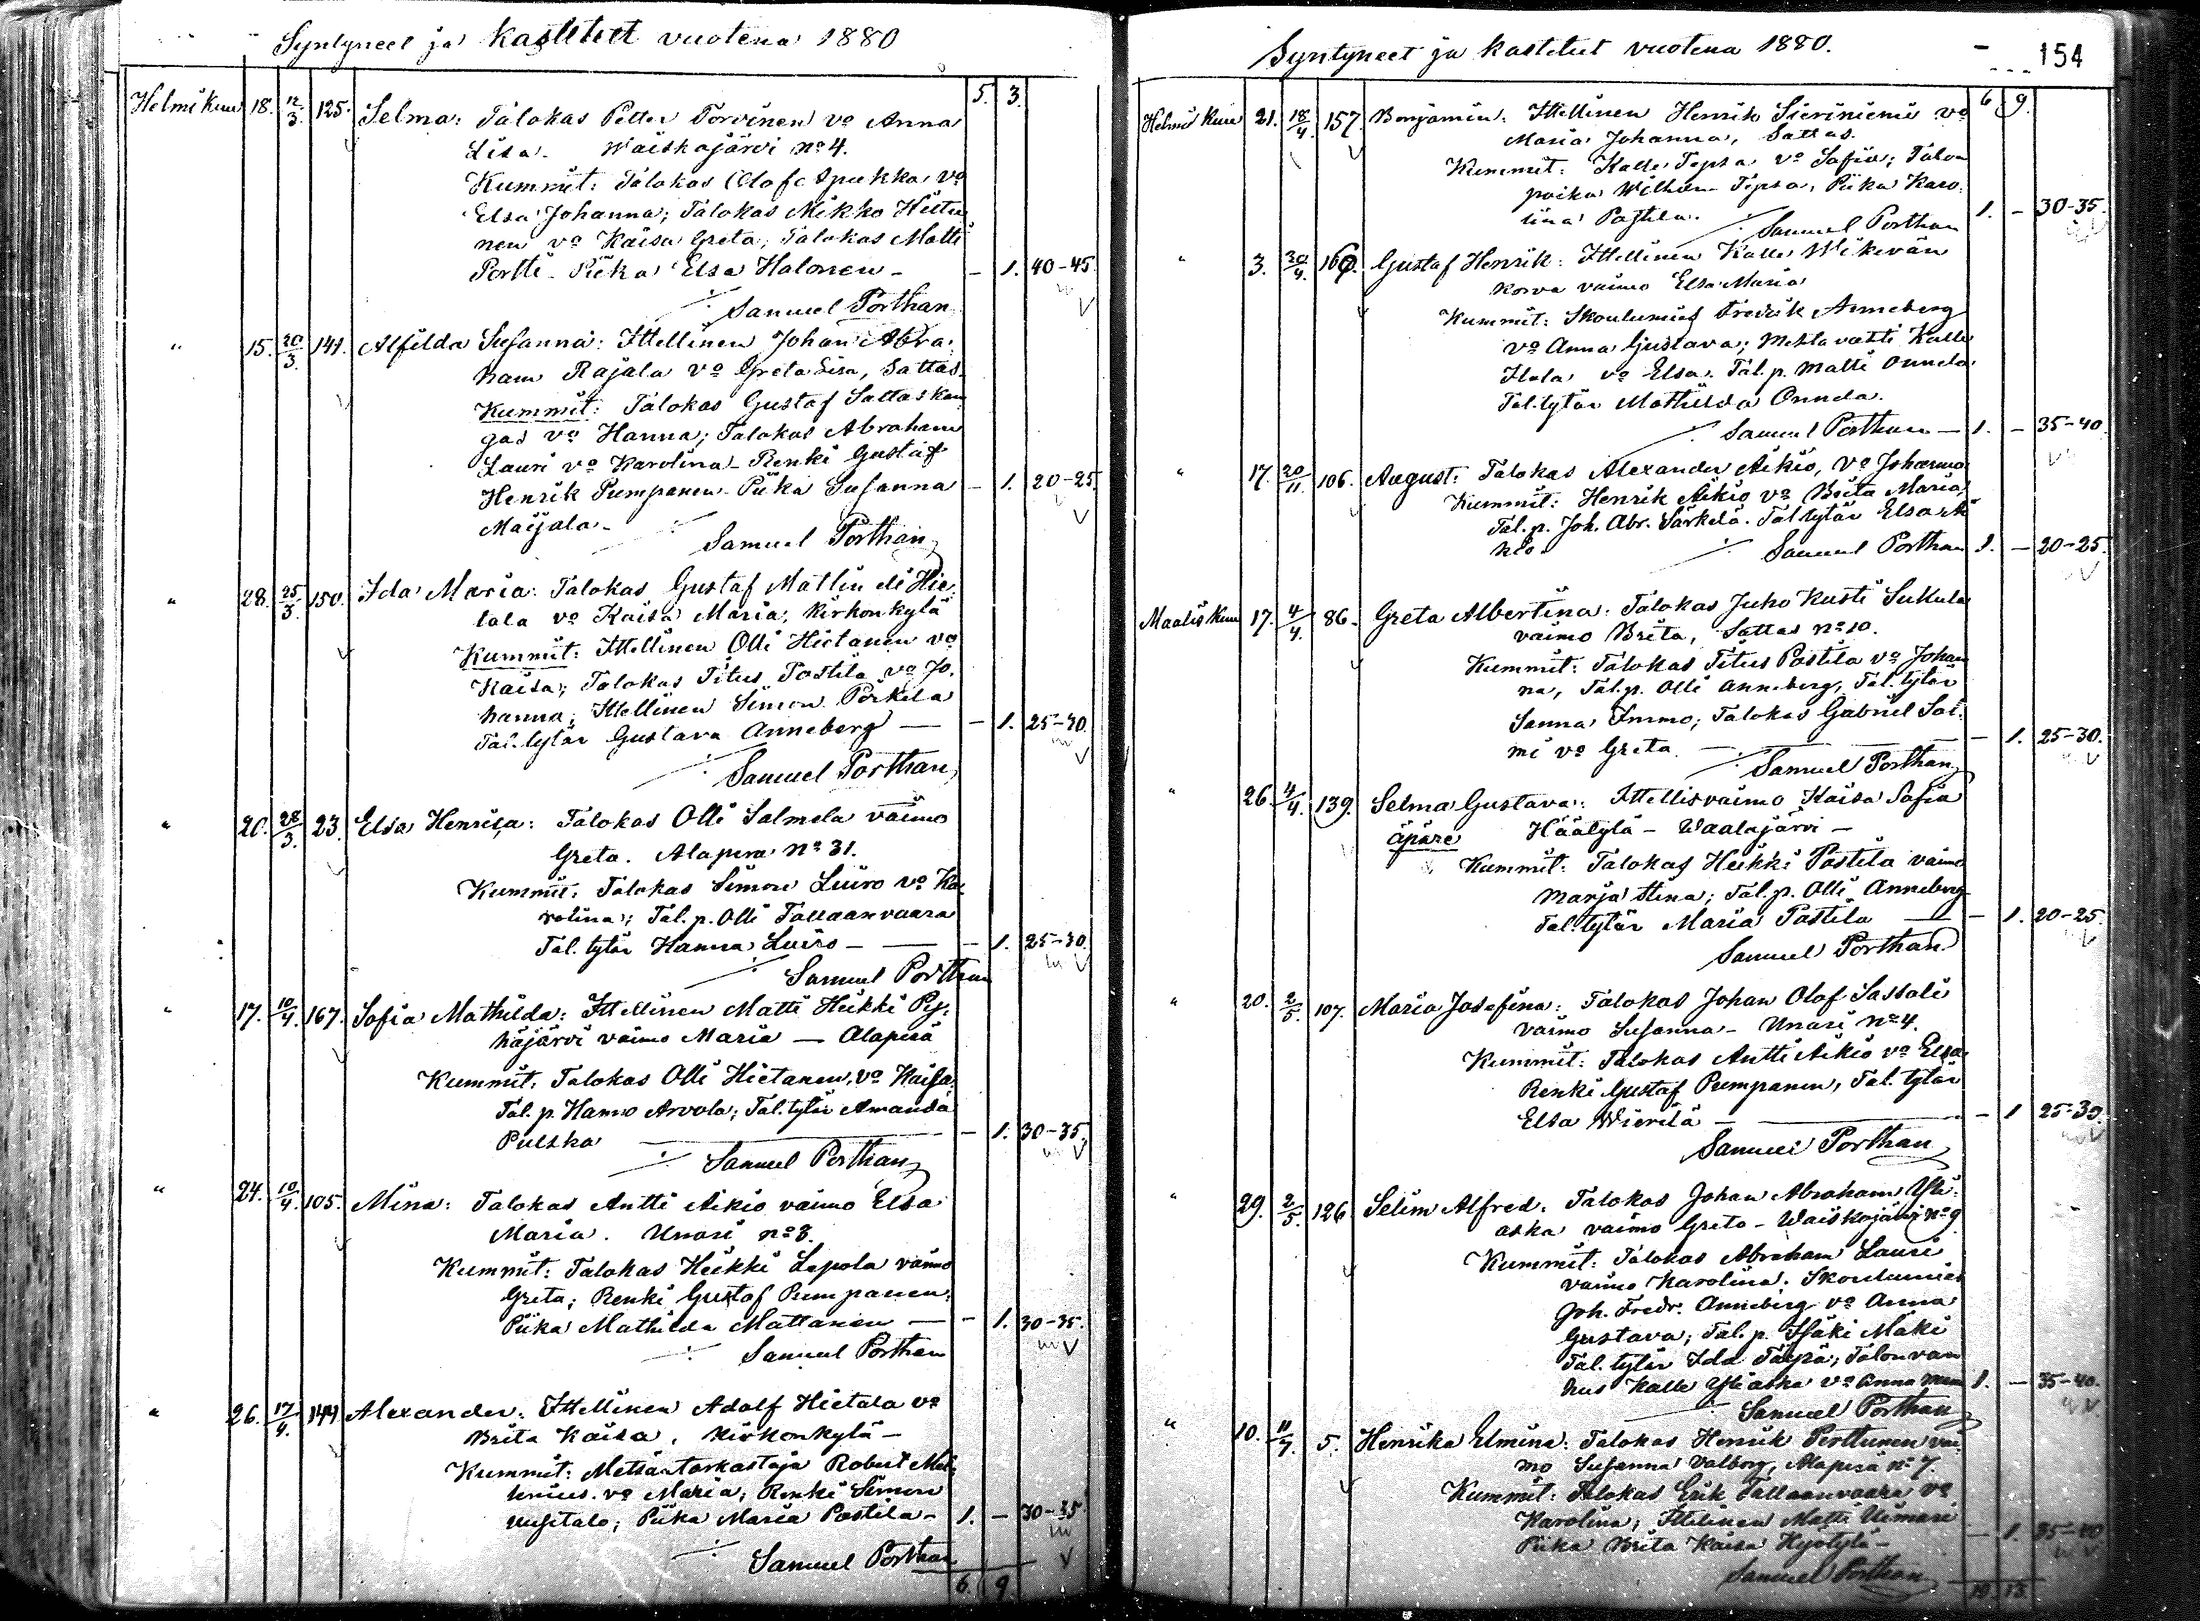 Syntyneet ja kastetut vuotena 1880
5. 3.
Helmi kuu 18. 12/3 125. Selma: Talokas Petter Torvinen vo Anna
Lisa. Waiskojärvi no 4.
Kummit: Talokas Olof Spukka vo
Elsa Johanna; Talokas Mikko Hietanen
nen vo Kaisa Greta; Talokas Matti
Portti - Piika Elsa Halonen - - 1. 40-45.
Samuel Porthan
" 15. 20/3 141. Alfilda Susanna: Ittellinen Johan Abra-
ham Rajala vo Greta Lisa, Sattas
Kummit: Talokas Gustaf Sattaskan
gas vo Hanna; Talokas Abraham
Lauri vo Karolina - Renki Gustaf
Henrik Pumpanen - Piika Susanna - 1. 20-25.
Maijala -
Samuel Porthan
" 28. 25/3 150. Ida Maria: Talokas Gustaf Matlin eli Hie-
tala vo Kaisa Maria, Kirkonkylä
Kummit: Ittellinen Olli Hietanen vo
Kaisa; Talokas Titus Postila vo Jo-
hanna; Ittellinen Simon Pörkelä
Tal. tytär Gustava Anneberg - - 1. 25-30.
Samuel Porthan
" 20. 28/3 23. Elsa Henrica: Talokas Olli Salmela vaimo
Greta. Alaperä No 31.
Kummit: Talokas Simon Luiro vo Ka-
rolina; Tal. p. Olli Tallaanvaara
Tal. tytär Hanna Luiro - - 1. 25-30.
Samuel Porthan
" 17. 10/4 167. Sofia Mathilda: Ittellinen Matti Heikki Py-
häjärvi vaimo Maria - Alaperä
Kummit: Talokas Olli Hietanen, vo Kaisa.
Tal. p. Hanno Arvola; Tal. tytär Amanda
Pulska - 1. 30-35.
Samuel Porthan
" 24. 10/4 105. Mina: Talokas Antti Aikio vaimo Elsa
Maria. Unari no 3.
Kummit: Talokas Heikki Lepola vaimo
Greta; Renki Gustaf Pumpanen.
Piika Mathilda Mattanen - - 1. 30-35.
Samuel Porthan
" 26. 17/4 144 Alexander: Ittellinen Adolf Hietala vo
Brita Kaisa, Kirkonkylä -
Kummit: Metsäntarkastaja Robert
vo Maria; Renki Simon
Uusitalo; Piika Maria Postila - 1. - 30-35.
Samuel Porthan
6. 9
Syntyneet ja kastetut vuotena 1880.
154
6 9.
Helmi kuu 21. 18/4 157. Benjamin: Ittellinen Henrik Sieriniemi vo
Maria Johanna, Sattas.
Kummit: Kalle Tepsa vo Sofia; Talon
poika Wilhem Tepsa, Piika Karo-
lina Postila. 1. - 30-35.
Samuel Porthan
" 3. 30/4 160. Gustaf Henrik: Ittellinen Kalle Wikevän
korva vaimo Elsa Maria
Kummit: Skoulumies Fredrik Anneberg
vo Anna Gustava; Mettävahti Kalle
Ilola vo Elsa. Tal. p. Matti Onnela
Tal. tytär Mathilda Onnela.
Samuel Porthan - 1. - 35-40.
" 17. 20/11 106. August: Talokas Alexander Aikio, vo Johanna
Kummit: Henrik Aikio vo Brita Maria
Tal. p. Joh. Abr. Särkelä. Tal tytär Elsa Ai
kio
Samuel Porthan 1. - 20-25.
Maalis kuu 17. 4/4 86. Greta Albertina: Talokas Juho Kusti Sukula
vaimo Brita, Sattas no 10.
Kummit: Talokas Titus Postila vo Johan
na, Tal. p. Olli Anneberg, Tal. tytär
Sanna Immo; Talokas Gabriel Sal-
mi vo Greta - 1. 25-30.
Samuel Porthan
" 26. 4/4 139. Selma Gustava: Ittellisvaimo Kaisa Sofia
äpäre Häätylä - Waalajärvi -
Kummit: Talokas Heikki Postila vaimo
Marja Stina; Tal. p. Olli Anneberg
Tal. tytär Maria Postila - 1. 20-25.
Samuel Porthan
" 20. 2/5 107. Maria Josefina: Talokas Johan Olof Sassali
vaimo Susanna - Unari No 4.
Kummit: Talokas Antti Aikio vo Elsa
Renki Gustaf Pumpanen, Tal. tytär
Elsa Wierelä - - 1 25-30.
Samuel Porthan
" 29. 2/5 126 Selim Alfred. Talokas Johan Abraham Yli-
aska vaimo Greta - Waiskojärvi no 9
Kummit: Talokas Abraham Lauri
vaimo Karolina. Skoulumies
Joh. Fredr. Anneberg vo Anna
Gustava; Tal. p. Isäki Mäki
Tal. tytär Ida Tarpa; Talonvan
hus Kalle Yliaska vo Anna 1. - 35-40.
Samuel Porthan
" 10. 11/7 5. Henrika Elmina: Talokas Henrik Perttunen vai-
mo Susanna Valborg, Alaperä no 7.
Kummit: Talokas Erik Tallaanvaara vo
Karolina; Ittellinen Matti Uimari
Piika Brita Kaisa Hyötylä - - 1. 35-40
Samuel Porthan
10 13.